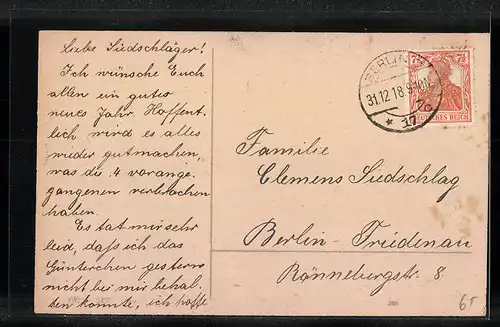 Liebe Siedschläger!
Ich wünsche Euch
allen ein gutes
neues Jahr. Hoffent-
lich wird es alles
wieder gutmachen,
was die 4 vorange-
gangenen verbrochen
haben.
Es tat mir sehr
leid, daß ich das
Günterchen gestern
nicht bei mir behal-
ten konnte, ich hoffe
BERLIN
31.12.18.9-10N.
* 17
7½ 7½
DEUTSCHES REICH
Familie
Clemens Siedschlag
Berlin-Friedenau
Rönnebergstr. 8
65